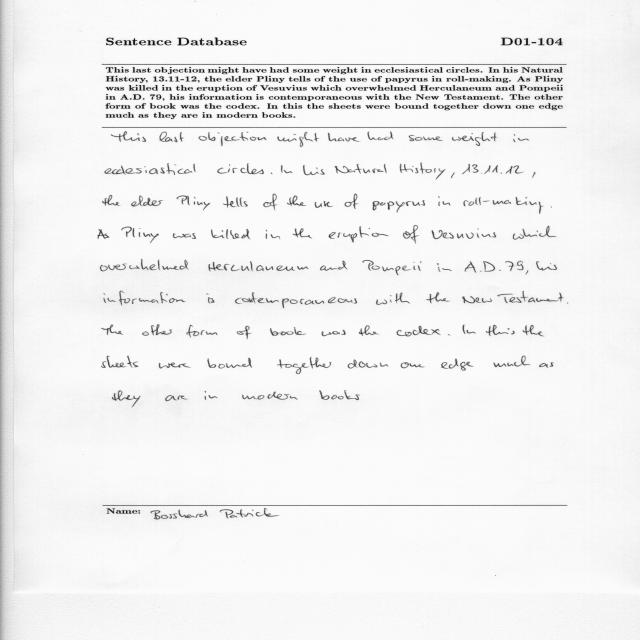 Sentence Database D01-104
This last objection might have had some weight in ecclesiastical circles. In his Natural
History, 13.11-12, the elder Pliny tells of the use of papyrus in roll-making. As Pliny
was killed in the eruption of Vesuvius which overwhelmed Herculaneum and Pompeii
in A.D. 79, his information is contemporaneous with the New Testament. The other
form of book was the codex. In this the sheets were bound together down one edge
much as they are in modern books.
This last objection might have had some weight in
ecclesiastical circles. In his Natural History, 13.11.12,
the elder Pliny tells of the use of papyrus in roll-making.
As Pliny was killed in the eruption of Vesuvius which
overwhelmed Herculaneum and Pompeii in A.D. 79, his
information is cotemporaneous with the New Testament.
The other form of book was the codex. In this the
sheets were bound together down one edge much as
they are in modern books
Name: Bosshard Patrick